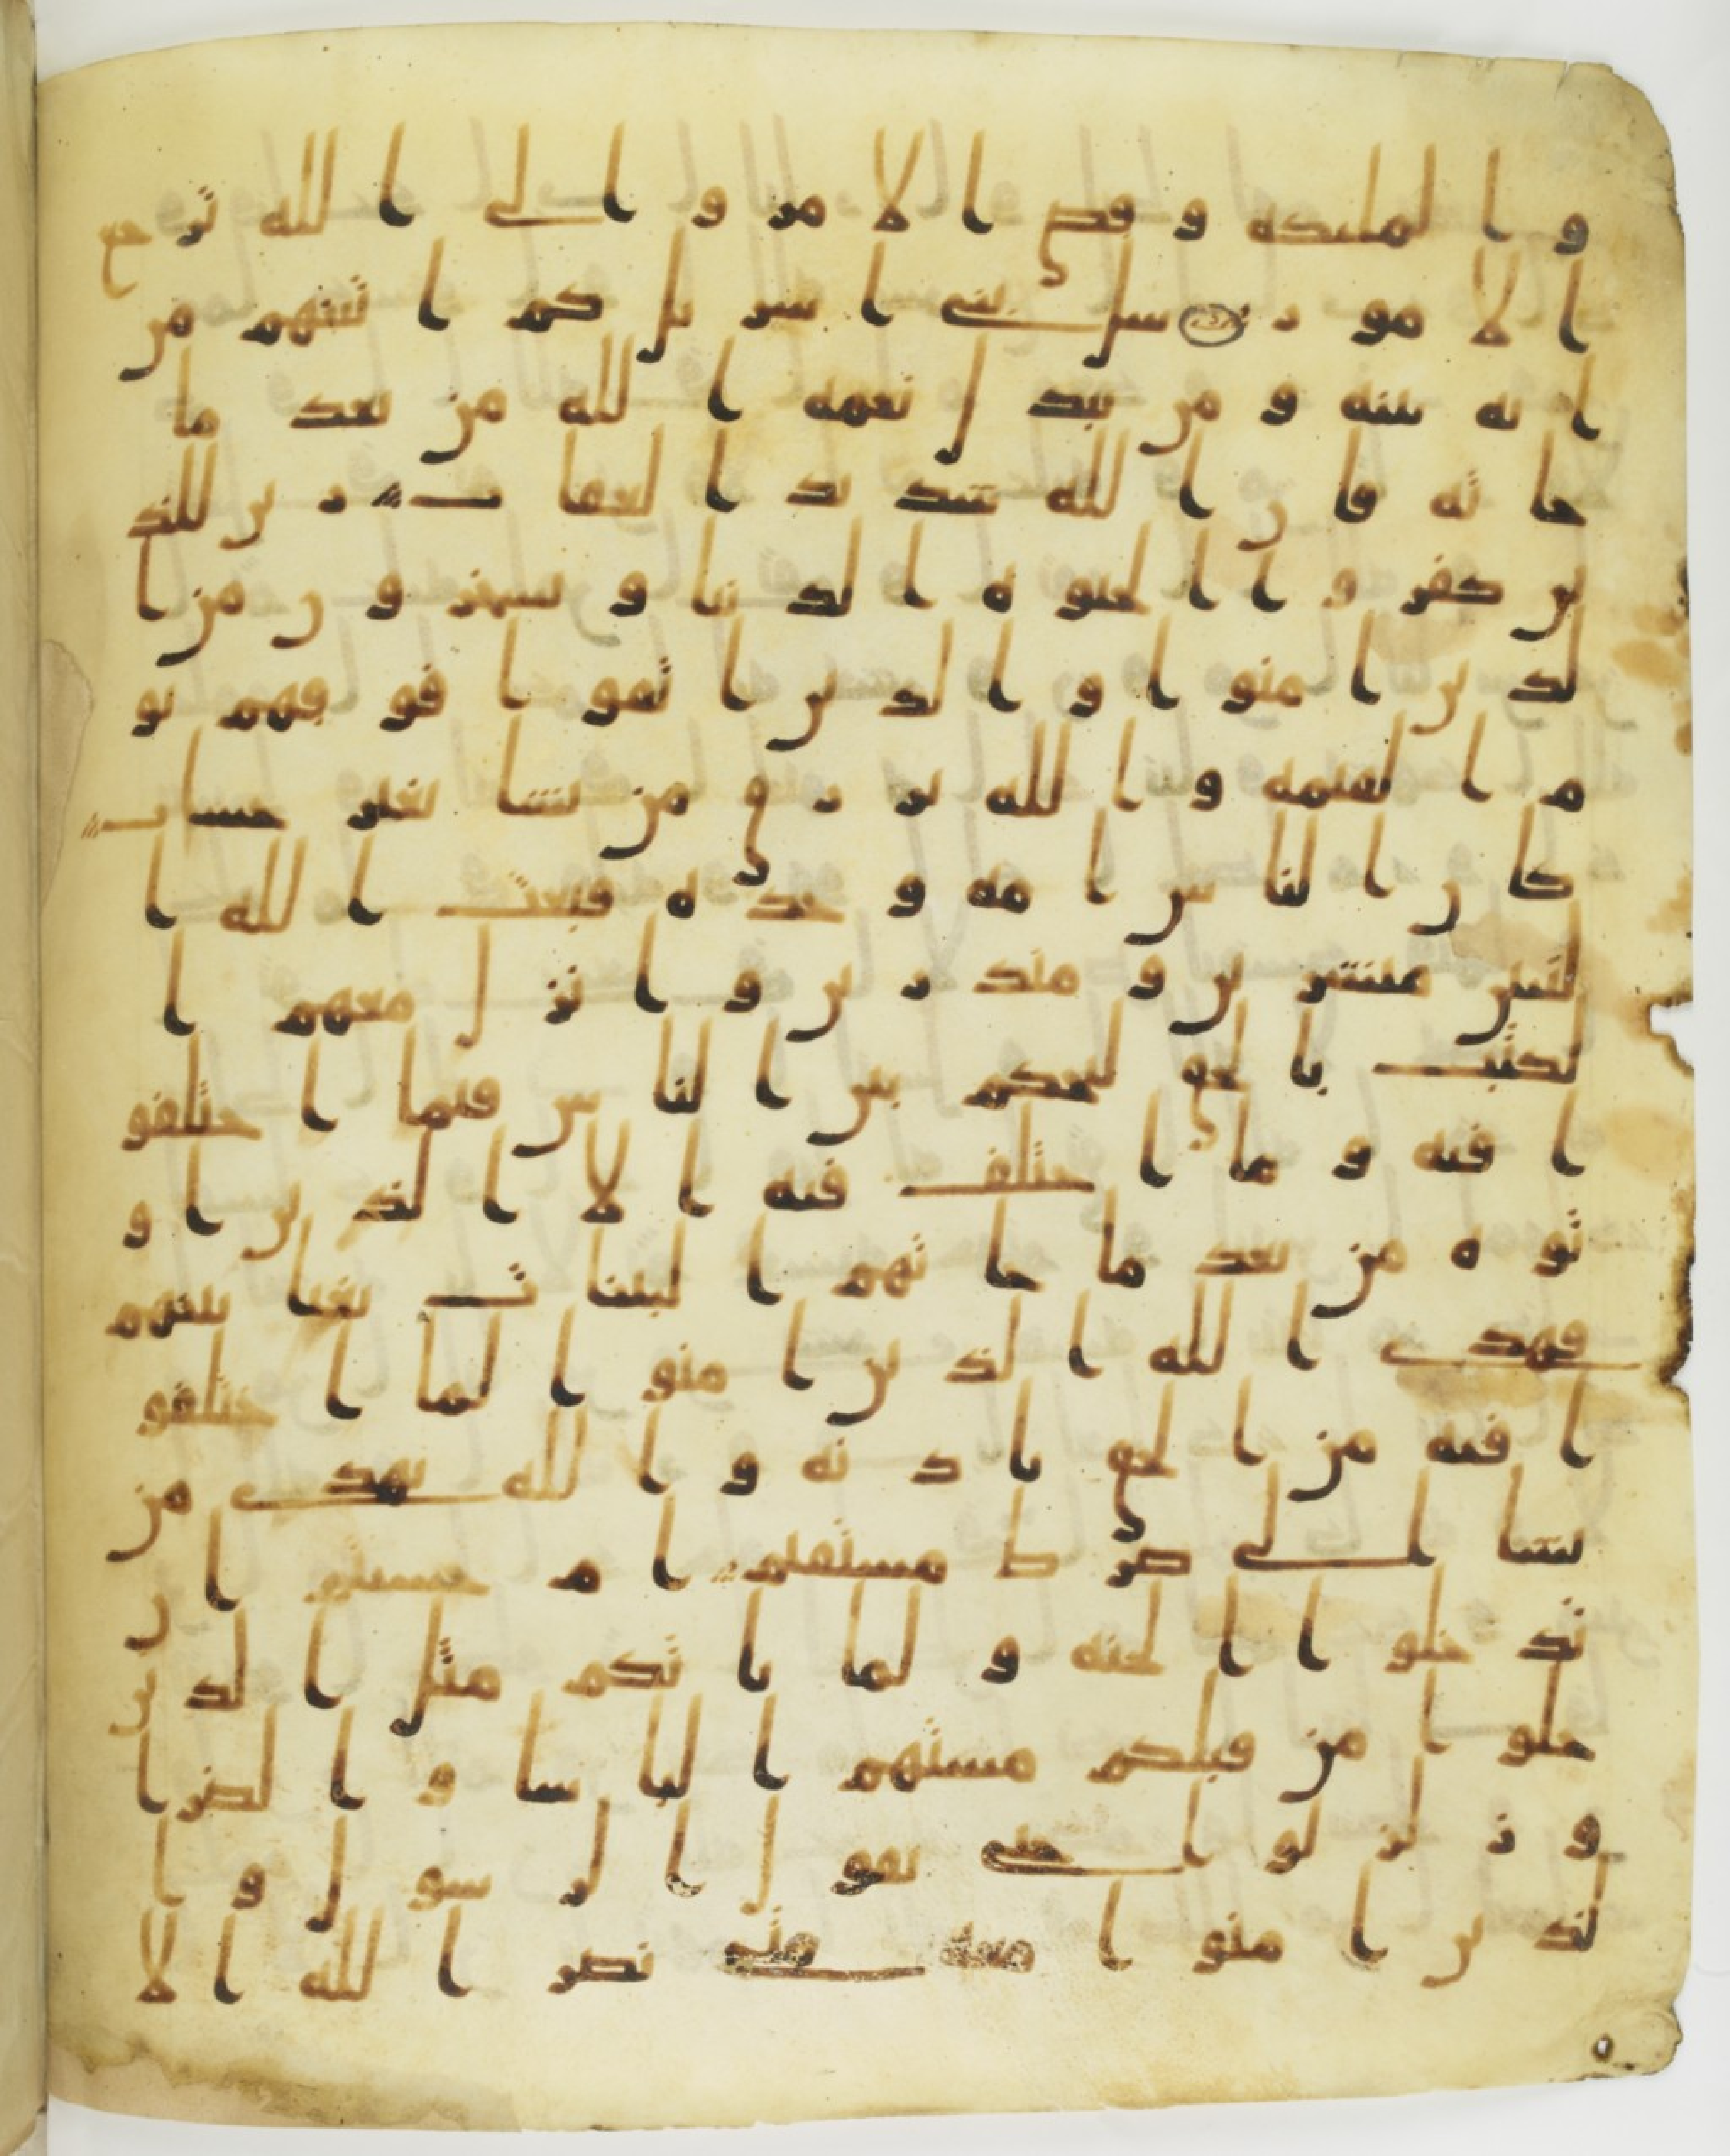 والملىكه وقضى الامر والى الله ترجع
الامور سل بنى اسريل كم اتينهم من
ايه بينه ومن يبدل نعمه الله من بعد ما
جاته فان الله شديد العقاب زين للذ
ين كفروا الحيوه الدنيا ويسخرون من ا
لذين امنوا والذين اتقوا فوقهم يو
م القيمه والله يرزق من يشا بغير حساب
كان الناس امه وحده فبعث الله ا
لنبين مبشرين ومنذرين وانزل معهم ا
لكتب بالحق ليحكم بين الناس فيما اختلفو
ا فيه وما اختلف فيه الا الذين او
توه من بعد ما جاتهم البينات بغيا بينهم
فهدى الله الذين امنوا لما اختلفو
ا فيه من الحق باذنه والله يهدى من
يشا الى صرط مستقيم ام حسبتم ان
تدخلوا الجنه ولما ياتكم مثل الذين
خلوا من قبلكم مستهم الباسا والضرا
وزلزلوا حتى يقول الرسول وا
لذين امنوا معه متى نصر الله الا